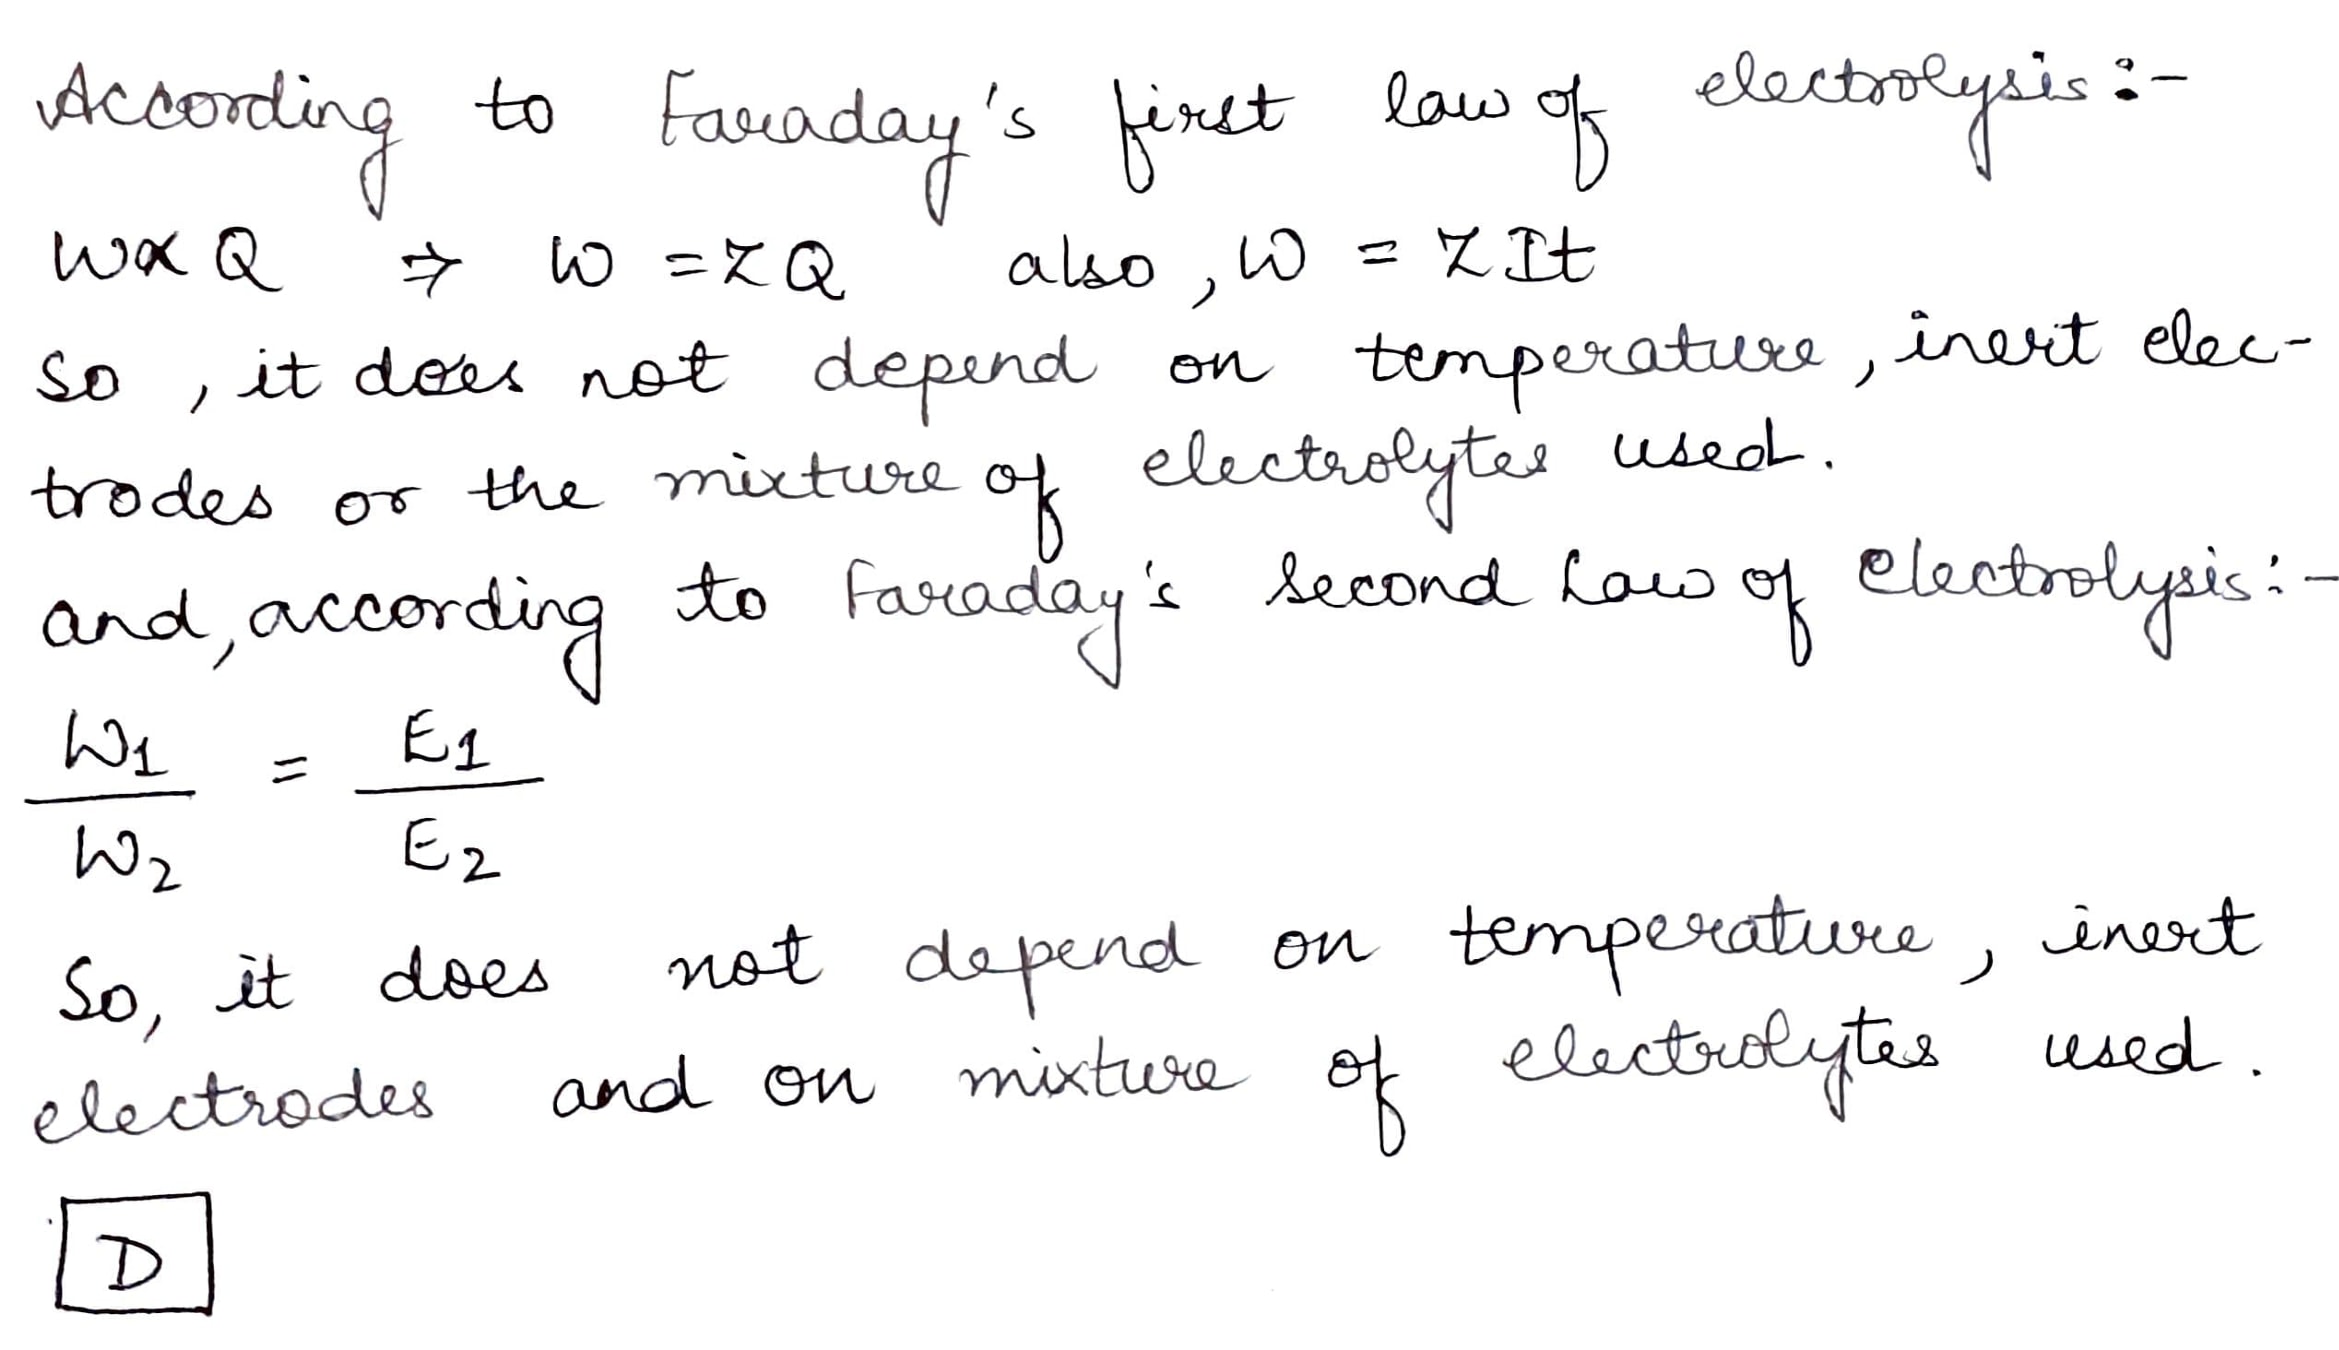 According to Faraday's first law of electrolysis :-
W∝Q ⇒ W = ZQ also, W = ZIt
So, it does not depend on temperature, inert elec-
trodes or the mixture of electrolytes used.
and, according to Faraday's second Law of Electrolysis :-
W1/W2 = E1/E2
So, it does not depend on temperature, inert
electrodes and on mixture of electrolytes used.
D